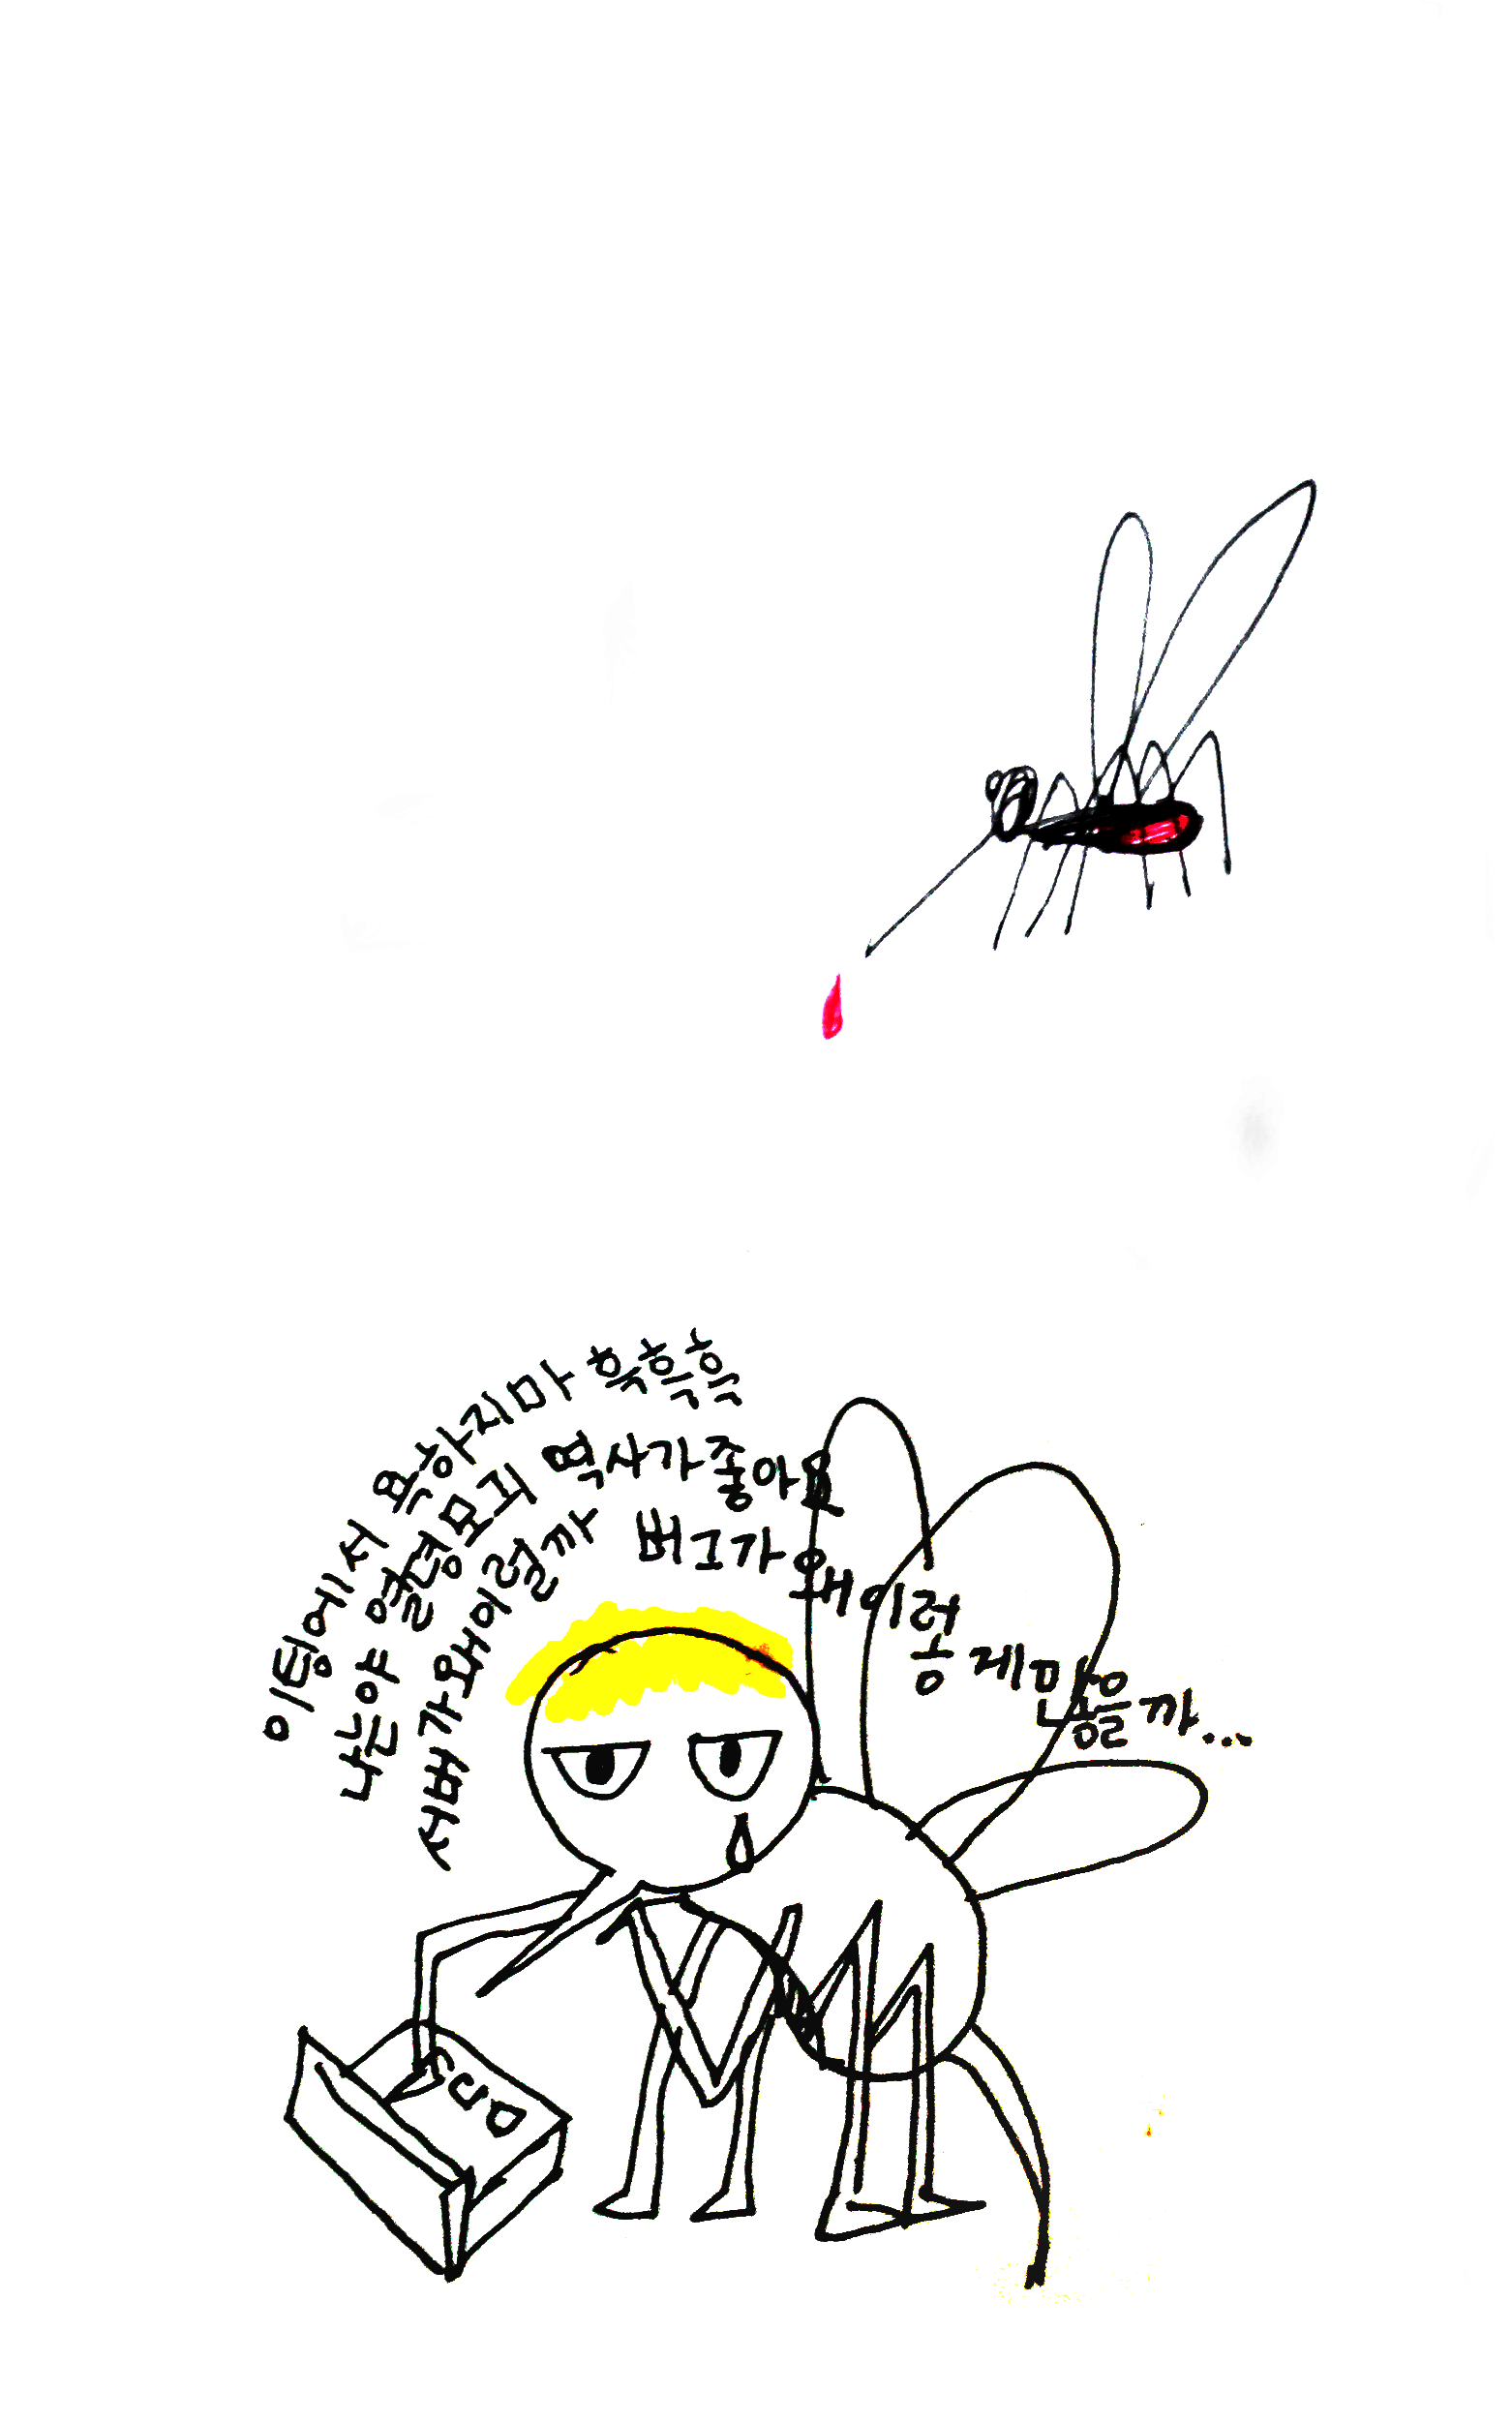 이팅에서 욕하지마 흑흑흑
나는야 열령모기 역사가좋아요
서버가왜이럴까 버그가 왜 이렁 제만을까...